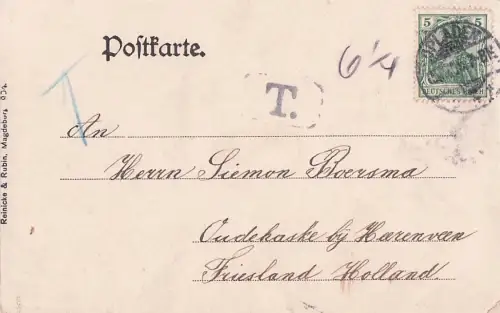 Postkarte.
5
OPLADEN
DEUTSCHES REICH
6¼
T
T.
An
Herrn Siemon Boersma
Oudehaske bij Heerenveen
Friesland Holland.
Reinicke & Rubin, Magdeburg